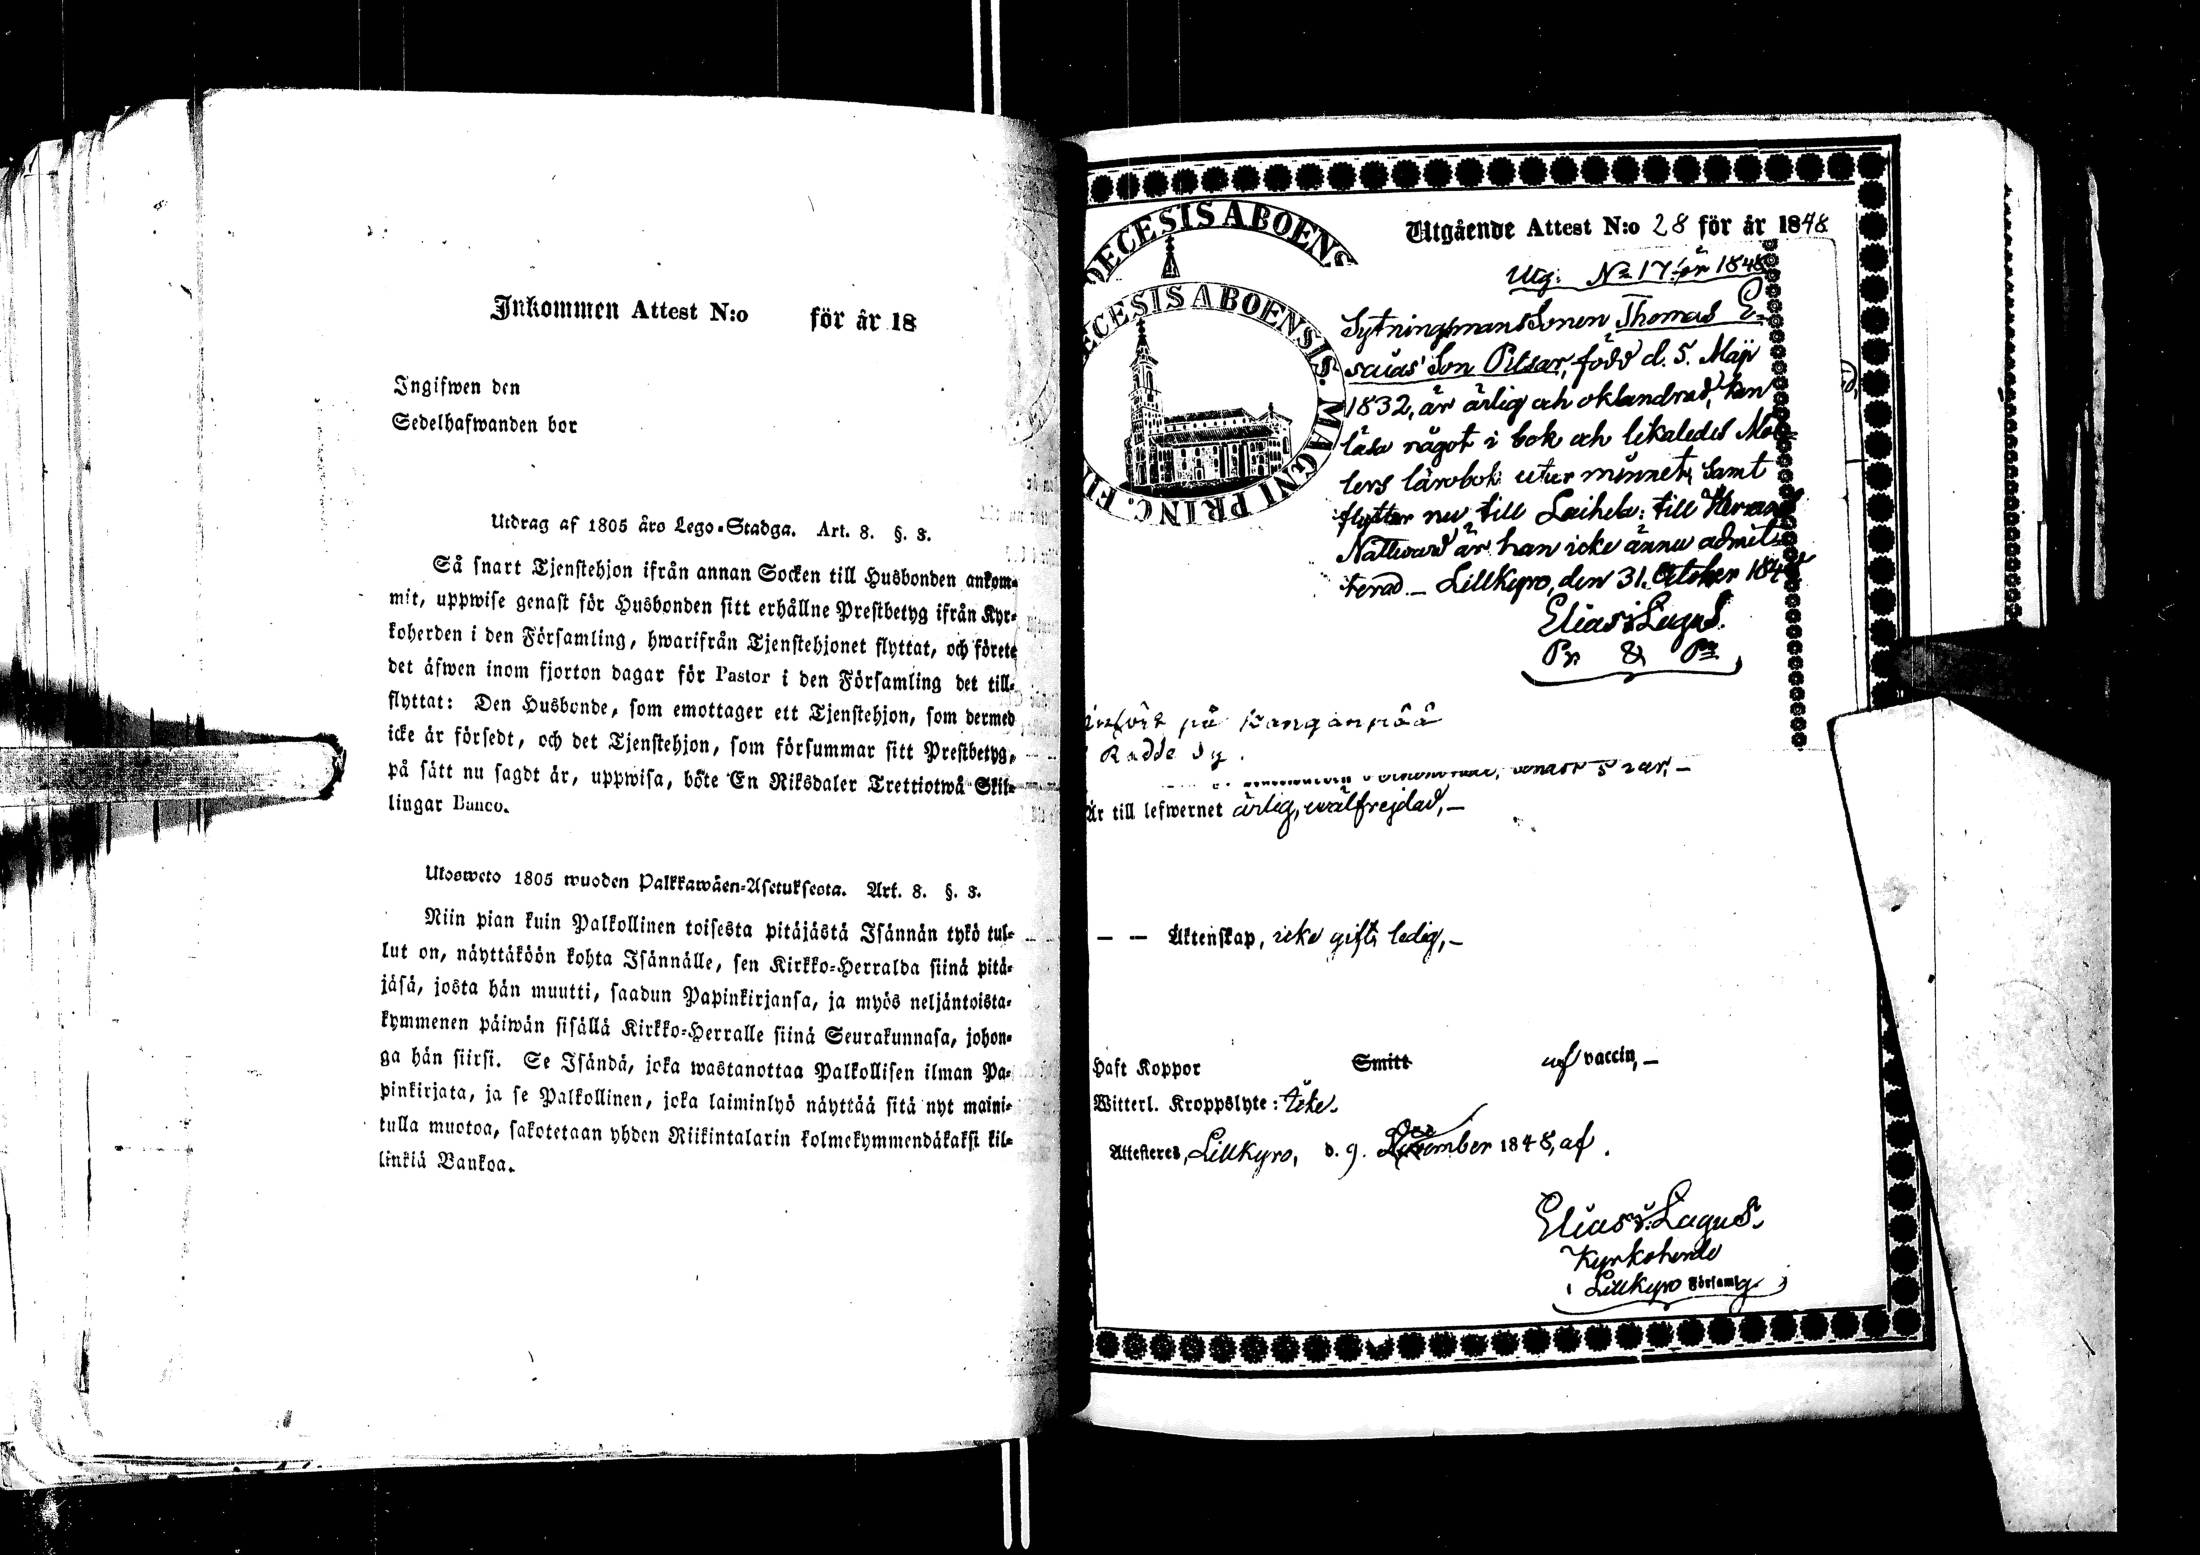 Inkommen Attest N:o för år 18
Ingifwen den
Sedelhafwanden bor
Utdrag af 1805 års Lego-Stadga. Art. 8. §. 3.
Så snart Tjenstehjon ifrån annan Socken till Husbonden ankom-
mit, uppwise genast för Husbonden sitt erhållne Prestbetyg ifrån Kyr-
koherden i den Församling, hwarifrån Tjenstehjonet flyttat, och förete
det äfwen inom fjorton dagar för Pastor i den Församling det till-
flyttat: Den Husbonde, som emottager ett Tjenstehjon, som dermed
icke är försedt, och det Tjenstehjon, som försummar sitt Prestbetyg,
på sätt nu sagdt är, uppwisa, böte En Riksdaler Trettiotwå Skil-
lingar Banco.
Ulosweto 1805 wuoden Palkkawäen-Asetuksesta. Art. 8. §. 3.
Niin pian kuin Palkollinen toisesta pitäjästä Isännän tykö tul-
lut on, näyttäköön kohta Isännälle, sen Kirkko-Herralda siinä pitä-
jäsä, josta hän muutti, saadun Papinkirjansa, ja myös neljäntoista-
kymmenen päiwän sisällä Kirkko-Herralle siinä Seurakunnasa, johon-
ga hän siirsi. Se Isändä, joka wastanottaa Palkollisen ilman Pa-
pinkirjata, ja se Palkollinen, joka laiminlyö näyttää sitä nyt maini-
tulla muotoa, sakotetaan yhden Riikintalarin kolmekymmendäkaksi kil-
linkiä Bankoa.
DECESIS ABOENS
ECESIS ABOENSIS. MAGNI PRINC. FI
Utgående Attest N:o 28 för år 1848
Utg: No 17 för 1848
Sytningsmans Sonen Thomas E-
saias' Son Pitsar, född d. 5. Maji
1832, är ärlig och oklandrad, kan
läsa något i bok och likaledes Mö
lers lärobok utur minnet, samt
flyttar nu till Laihela: till Herrans
Nattward är han icke ännu admit-
terad. — Lillkyro, den 31. October 1848
Elias Lagus.
Pr & Pr
infört på Kanganpää
Rudde by.
Är till lefwernet ärlig, wälfrejdad, —
— — Äktenskap, icke gift, ledig, —
Haft Koppor Smitt af vaccin, —
Witterl. Kroppslyte: Icke.
Attesteres, Lillkyro, d. 9. December 1848, af.
Elias Lagus.
Kyrkoherde
i Lillkyro Församlg.